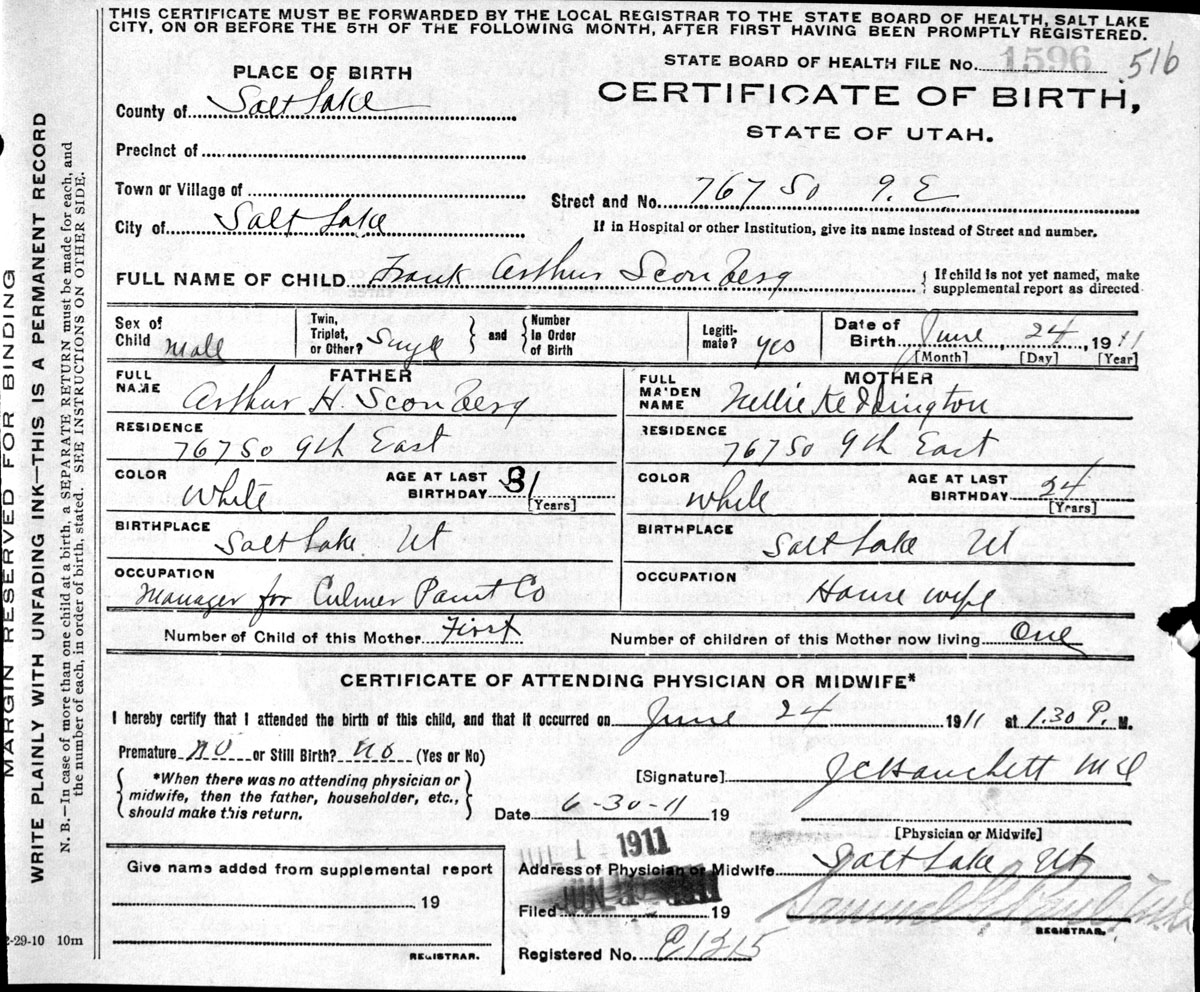 THIS CERTIFICATE MUST BE FORWARDED BY THE LOCAL REGISTRAR TO THE STATE BOARD OF HEALTH, SALT LAKE
CITY, ON OR BEFORE THE 5TH OF THE FOLLOWING MONTH, AFTER FIRST HAVING BEEN PROMPTLY REGISTERED.
STATE BOARD OF HEALTH FILE No. 1596 516
PLACE OF BIRTH
CERTIFICATE OF BIRTH,
County of Salt Lake
STATE OF UTAH.
Precinct of
Town or Village of
Street and No. 767 So 9. E
City of Salt Lake
If in Hospital or other Institution, give its name instead of Street and number.
FULL NAME OF CHILD Frank Arthur Sconberg { If child is not yet named, make
supplemental report as directed
Sex of
Child Male
Twin,
Triplet,
or Other? Single } and { Number
In Order
of Birth
Legiti-
mate? yes
Date of
Birth June 24, 1911
[Month] [Day] [Year]
FATHER
FULL
NAME Arthur H. Sconberg
MOTHER
FULL
MAIDEN
NAME Nellie Keddington
RESIDENCE
767 So 9th East
RESIDENCE
767 So 9th East
COLOR
White
AGE AT LAST
BIRTHDAY 31
[Years]
COLOR
White
AGE AT LAST
BIRTHDAY 24
[Years]
BIRTHPLACE
Salt Lake. Ut
BIRTHPLACE
Salt Lake Ut
OCCUPATION
Manager for Culmer Paint Co
OCCUPATION
House wife
Number of Child of this Mother First
Number of children of this Mother now living One
CERTIFICATE OF ATTENDING PHYSICIAN OR MIDWIFE*
I hereby certify that I attended the birth of this child, and that it occurred on June 24 1911 at 1.30 P. M.
Premature no or Still Birth? no (Yes or No)
{ *When there was no attending physician or
midwife, then the father, householder, etc.,
should make this return. }
[Signature] J C Hanchett MD
Date 6-30-11 19
[Physician or Midwife]
JUL 1 - 1911
Address of Physician or Midwife Salt Lake Ut
Give name added from supplemental report
19
REGISTRAR.
Filed 19
REGISTRAR.
Registered No. E1215
2-29-10 10m
MARGIN RESERVED FOR BINDING
WRITE PLAINLY WITH UNFADING INK—THIS IS A PERMANENT RECORD
N. B.—In case of more than one child at a birth, a SEPARATE RETURN must be made for each, and
the number of each, in order of birth, stated. SEE INSTRUCTIONS ON OTHER SIDE.